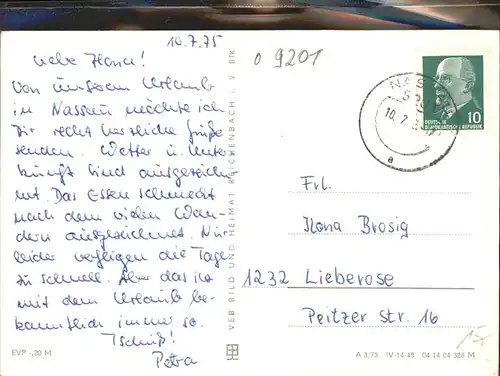 10.7.75
o 9201
Liebe Ilona!
Von unserem Urlaub
in Nassau möchte ich
Dir recht herzliche Grüße
senden. Wetter u. Unter
kunft sind ausgezeich
net. Das Essen schmeckt
nach dem vielen Wan-
dern ausgezeichnet. Nur
leider verfliegen die Tage
zu schnell. Aber das ist
mit dem Urlaub be-
kanntlich immer so.
Tschüß!
Petra
EVP -,20 M
VEB BILD UND HEIMAT REICHENBACH I. V. BTK
NAS
10.7.
a
10
DEUTSCHE
DEMOKRATISCHE REPUBLIK
Frl.
Ilona Brosig
1232 Lieberose
Peitzer str. 16
A 3/75 IV-14-48 04 14 04 328 M